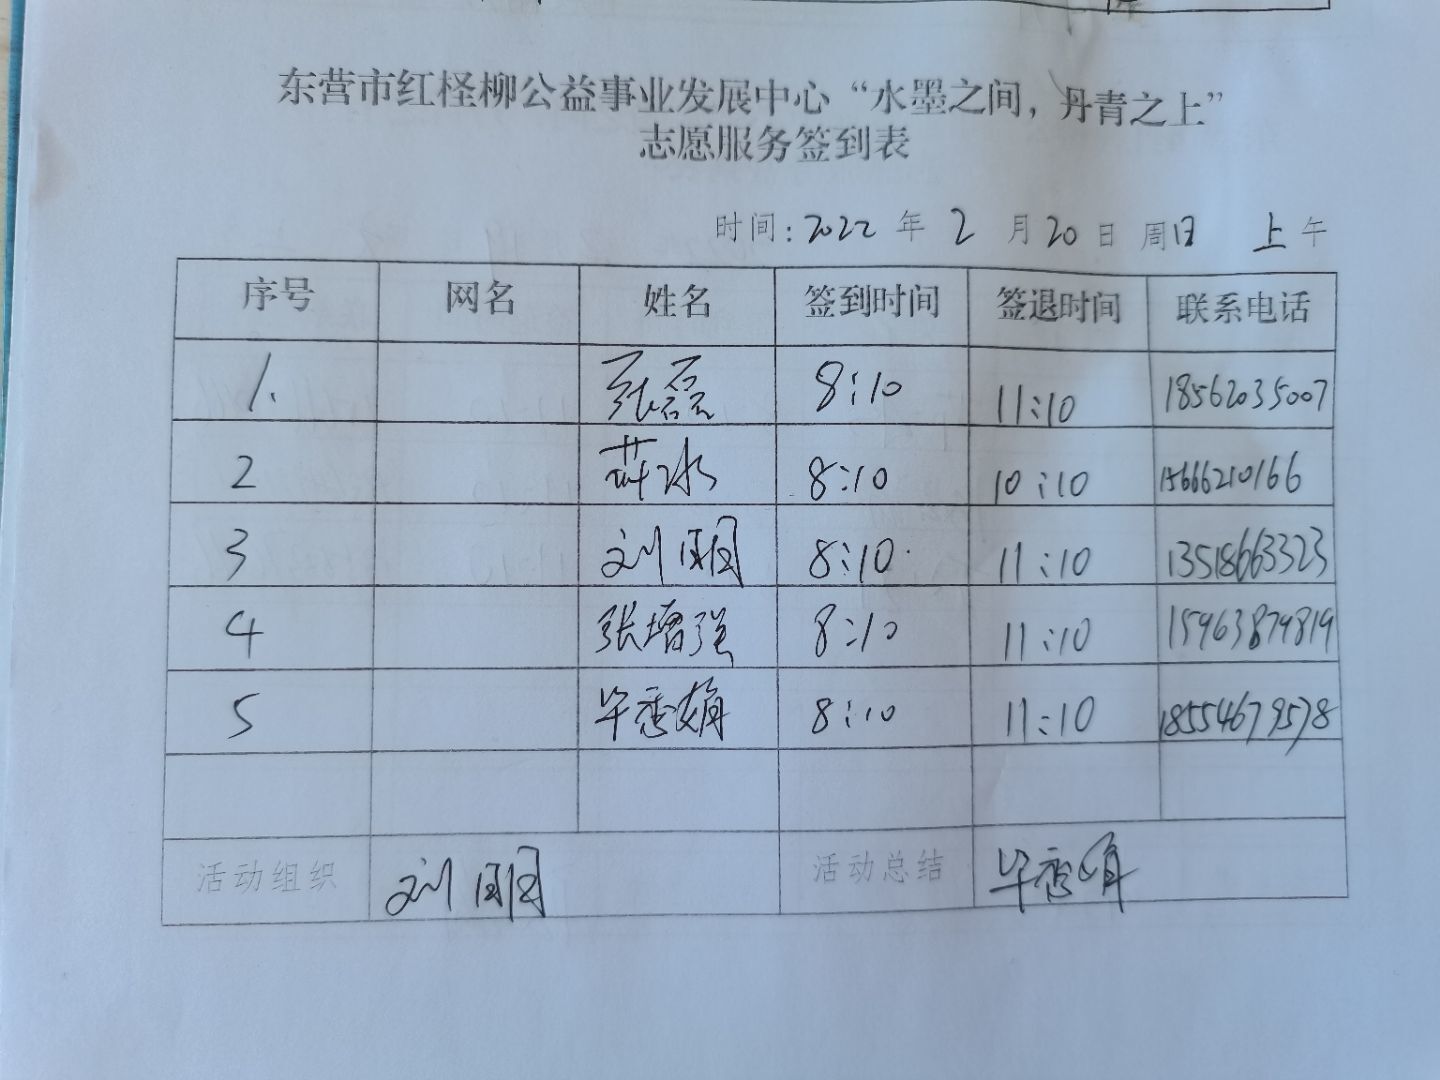 东营市红柽柳公益事业发展中心“水墨之间，丹青之上”
志愿服务签到表
时间：2022年2月20日 周日 上午
序号 网名 姓名 签到时间 签退时间 联系电话
1. 张磊 8:10 11:10 18562035007
2 8:10 10:10 15666210166
3 刘 8:10 11:10 13518663323
4 张增强 8:10 11:10 15963879819
5 毕秀娟 8:10 11:10 18554679578
活动组织 刘 活动总结 毕秀娟